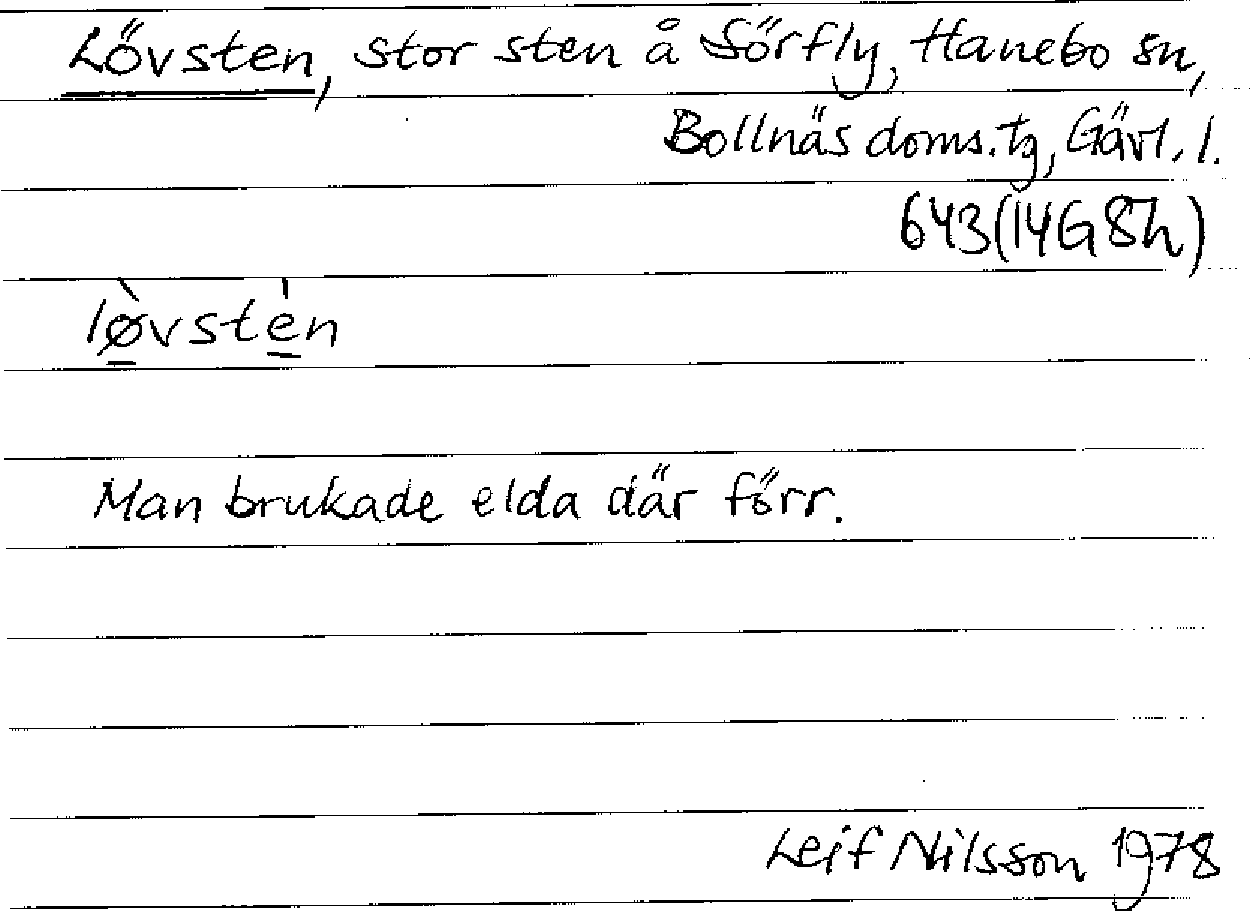 Lövsten, stor sten å Sörfly, Hanebo sn,
Bollnäs doms.tg, Gävl. l.
643(14G8h)
lø̀vstén
Man brukade elda där förr.
Leif Nilsson 1978